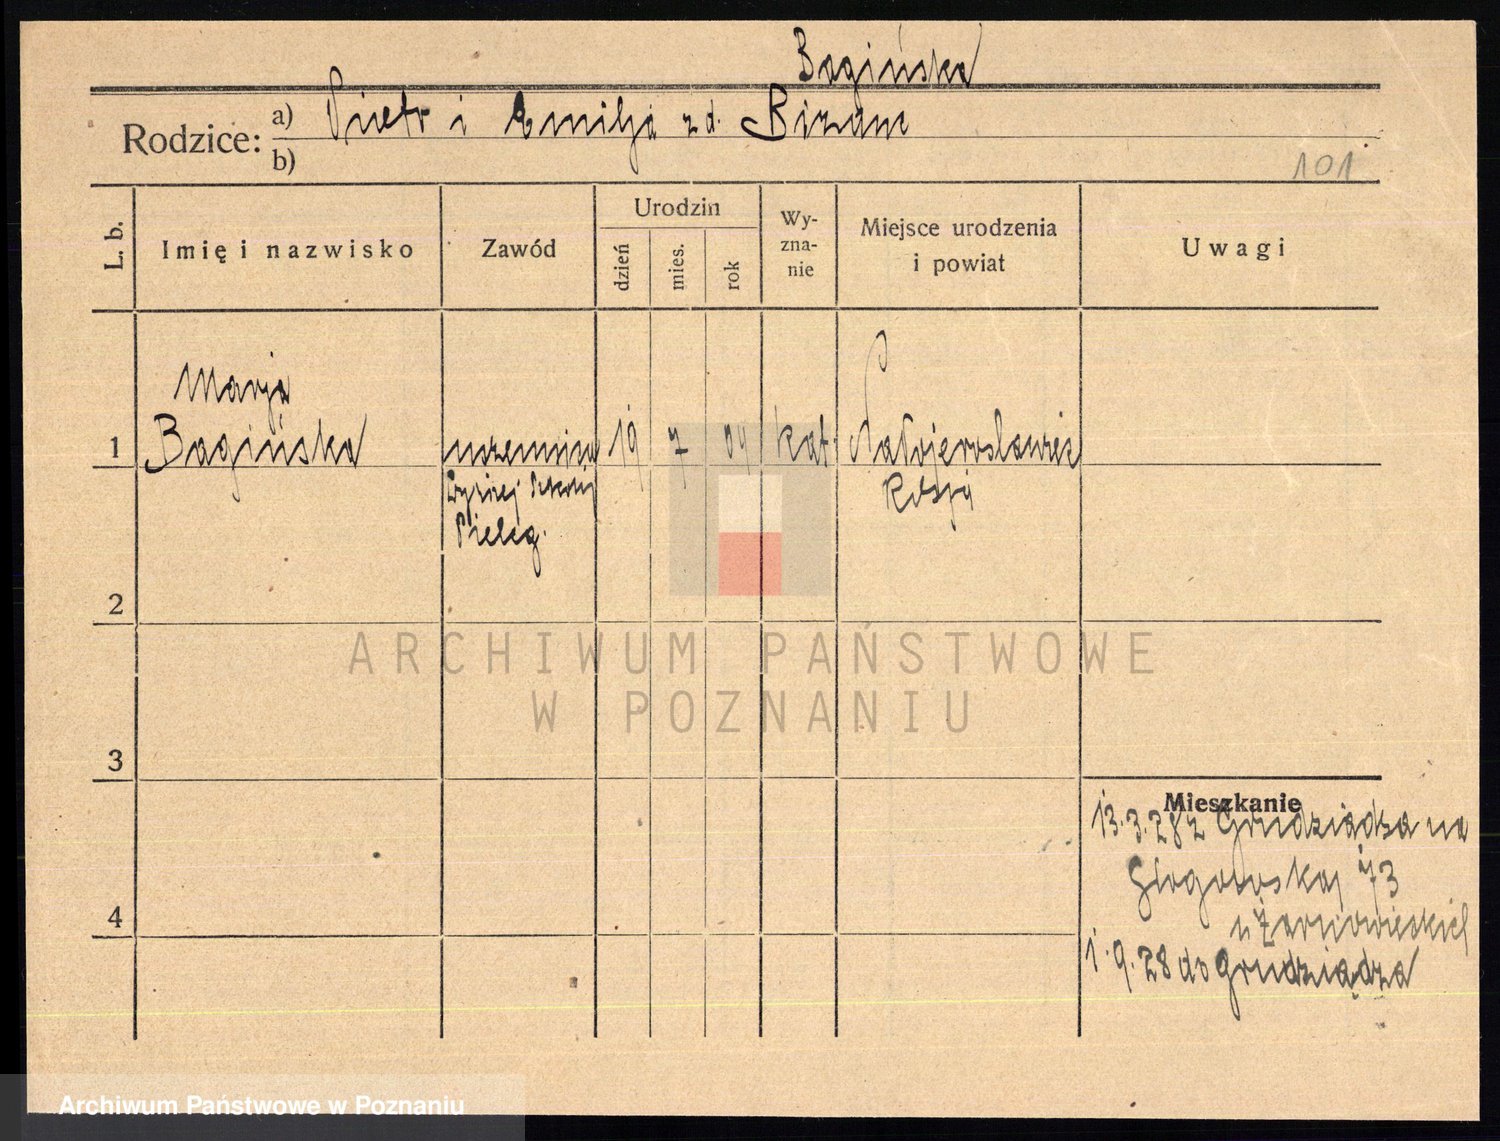 Bagińska
Rodzice: a) Piotr i Emilja z d. Bizanc
b)
101
L. b.
Imię i nazwisko
Zawód
Urodzin
dzień
mies.
rok
Wy-
zna-
nie
Miejsce urodzenia
i powiat
Uwagi
1
Marja
Bagińska
uczennica
Wyższej Szkoły
Pieleg.
19
7
04
kat.
Małojarosławiec
Rosja
2
ARCHIWUM PAŃSTWOWE
W POZNANIU
3
Mieszkanie
13.3.28 z Grudziądza na
Głogowskaj 73
u Żarnowieckich
4
1.9.28 do Grudziądza
Archiwum Państwowe w Poznaniu